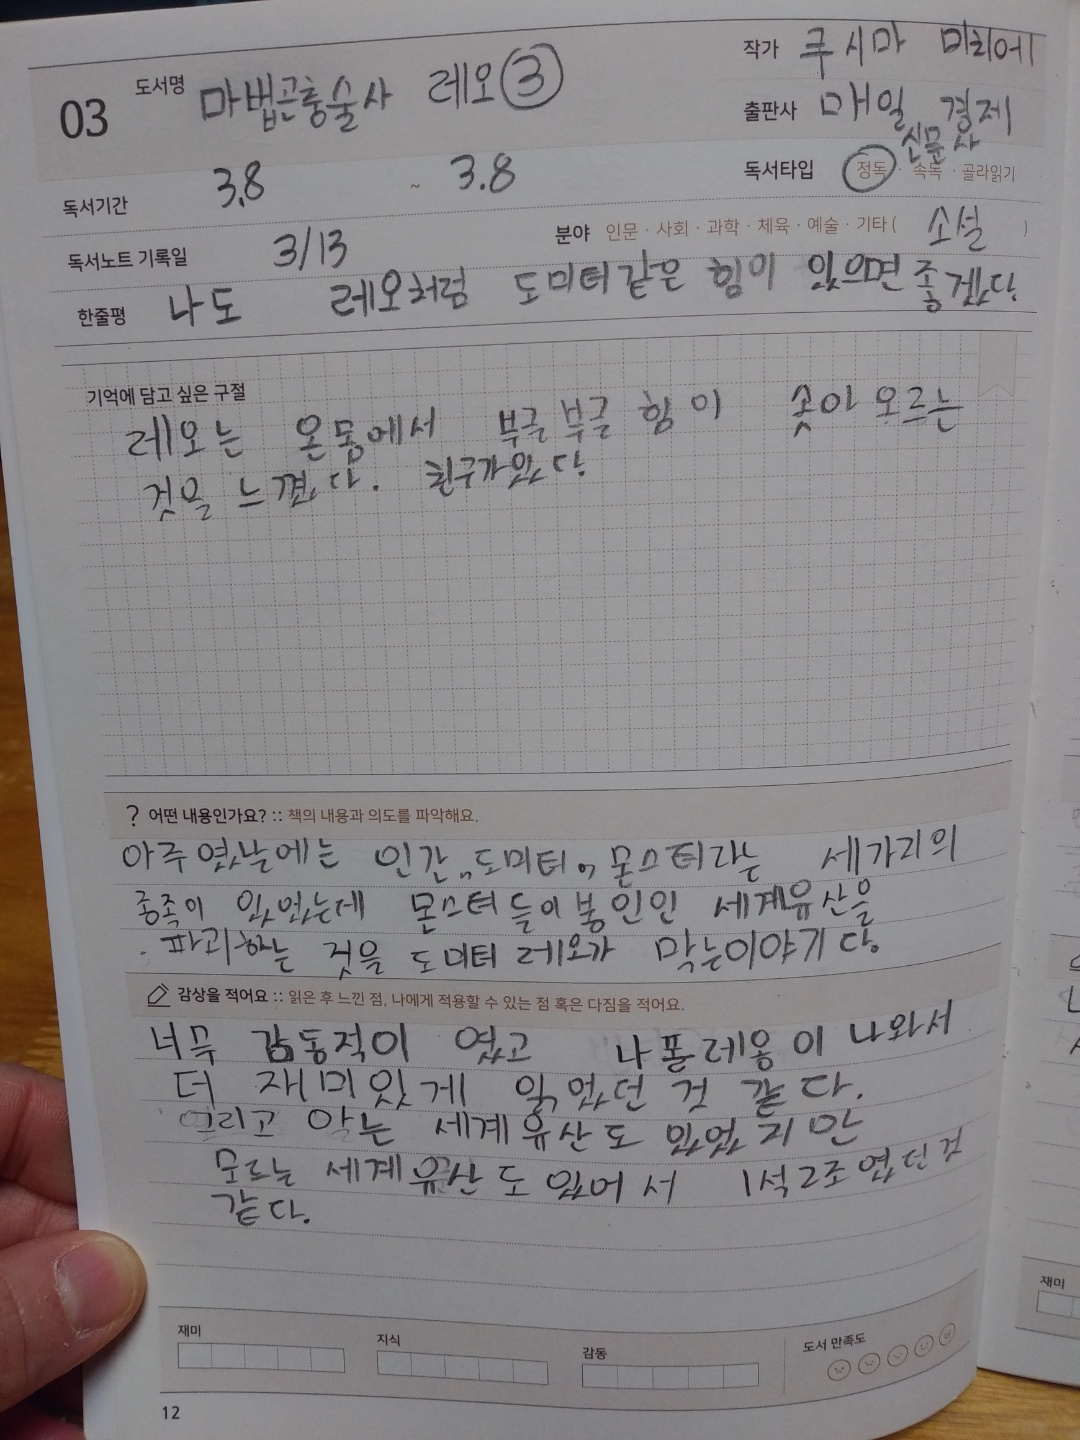 03 도서명 마법곤충술사 레오 ③
작가 쿠시마 미치에
출판사 매일 경제
신문사
독서기간 3.8 ~ 3.8
독서타입 정독 · 속독 · 골라읽기
독서노트 기록일 3/13
분야 인문 · 사회 · 과학 · 체육 · 예술 · 기타 ( 소설 )
한줄평 나도 레오처럼 도미터같은 힘이 있으면 좋겠다.
기억에 담고 싶은 구절
레오는 온몸에서 부글부글 힘이 솟아 오르는
것을 느꼈다. 친구가있다.
? 어떤 내용인가요? :: 책의 내용과 의도를 파악해요.
아주 옜날에는 인간, 도미터, 몬스터라는 세가지의
종족이 있었는데 몬스터들이 봉인인 세계유산을
파괴하는 것을 도미터 레오가 막는이야기다.
감상을 적어요 :: 읽은 후 느낀 점, 나에게 적용할 수 있는 점 혹은 다짐을 적어요.
너무 감동적이 였고 나폴레옹이 나와서
더 재미있게 읽었던 것 같다.
그리고 아는 세계유산도 있었지만
모르는 세계유산도 있어서 1석2조였던것
같다.
재미 지식 감동 도서 만족도
12
재미